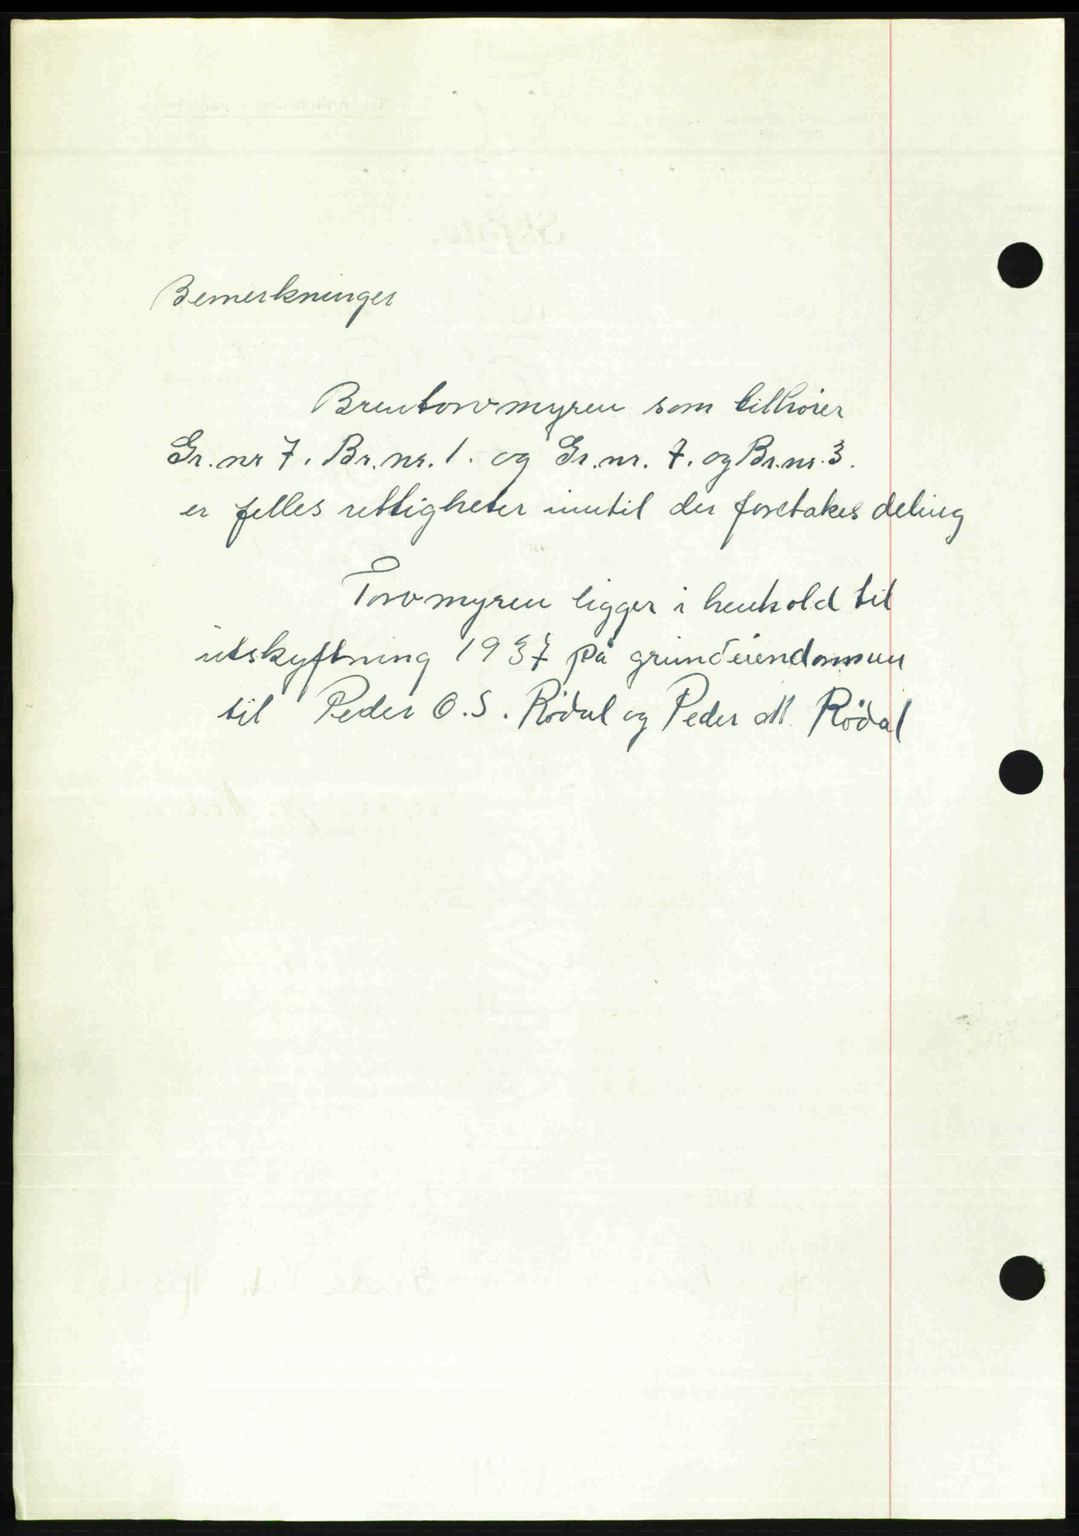 Bemerkninger
Brentorvmyren som tilhører
Gr. nr 7. Br. nr. 1. og Gr. nr. 7. og Br. nr. 3.
er felles rettigheter inntil der foretakes deling
Torvmyren ligger i henhold til
utskyftning 1937 på grunneiendommen
til Peder O. S. Rødal og Peder M. Rødal